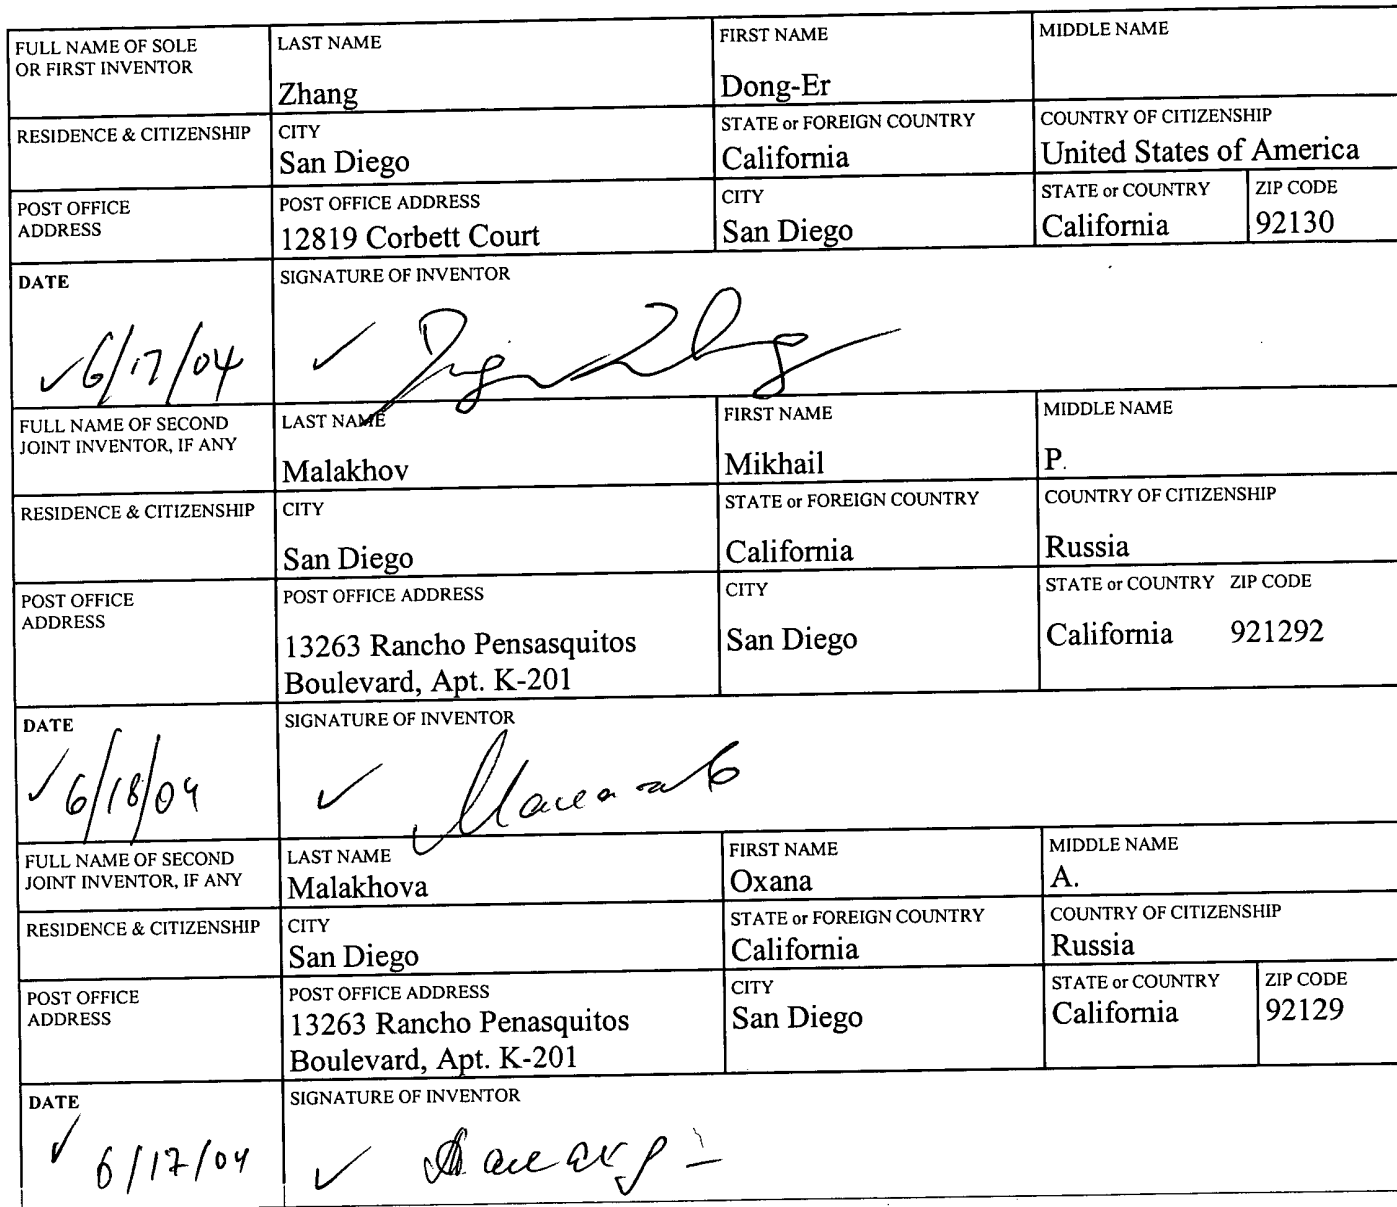 FULL NAME OF SOLE
OR FIRST INVENTOR
LAST NAME
Zhang
FIRST NAME
Dong-Er
MIDDLE NAME
RESIDENCE & CITIZENSHIP
CITY
San Diego
STATE or FOREIGN COUNTRY
California
COUNTRY OF CITIZENSHIP
United States of America
POST OFFICE
ADDRESS
POST OFFICE ADDRESS
12819 Corbett Court
CITY
San Diego
STATE or COUNTRY
California
ZIP CODE
92130
DATE
6/17/04
SIGNATURE OF INVENTOR
FULL NAME OF SECOND
JOINT INVENTOR, IF ANY
LAST NAME
Malakhov
FIRST NAME
Mikhail
MIDDLE NAME
P.
RESIDENCE & CITIZENSHIP
CITY
San Diego
STATE or FOREIGN COUNTRY
California
COUNTRY OF CITIZENSHIP
Russia
POST OFFICE
ADDRESS
POST OFFICE ADDRESS
13263 Rancho Pensasquitos
Boulevard, Apt. K-201
CITY
San Diego
STATE or COUNTRY ZIP CODE
California 921292
DATE
6/18/04
SIGNATURE OF INVENTOR
FULL NAME OF SECOND
JOINT INVENTOR, IF ANY
LAST NAME
Malakhova
FIRST NAME
Oxana
MIDDLE NAME
A.
RESIDENCE & CITIZENSHIP
CITY
San Diego
STATE or FOREIGN COUNTRY
California
COUNTRY OF CITIZENSHIP
Russia
POST OFFICE
ADDRESS
POST OFFICE ADDRESS
13263 Rancho Penasquitos
Boulevard, Apt. K-201
CITY
San Diego
STATE or COUNTRY
California
ZIP CODE
92129
DATE
6/17/04
SIGNATURE OF INVENTOR